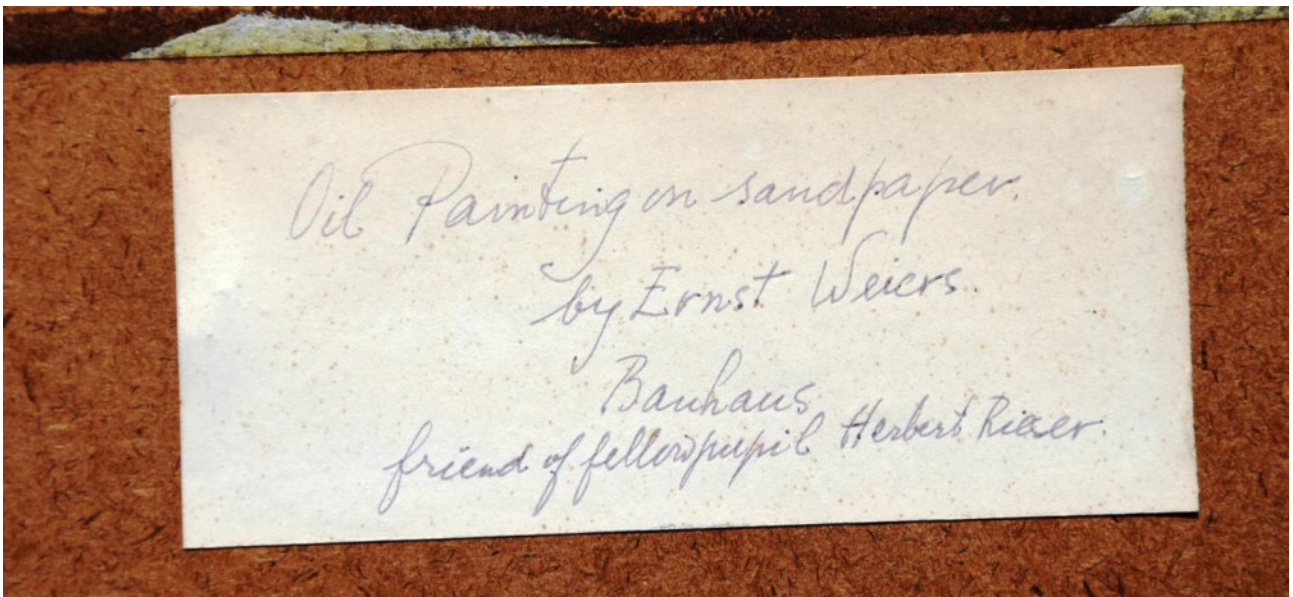 Oil Painting on sandpaper.
by Ernst Weiers.
Bauhaus
friend of fellowpupil Herbert Rieser.